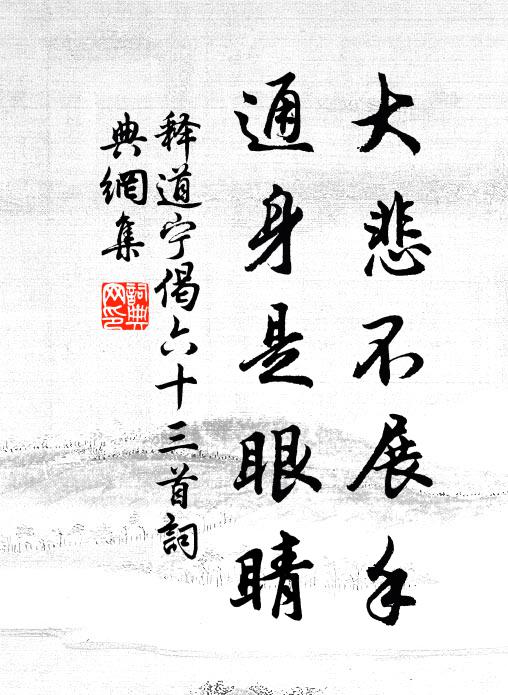 大悲不展手
通身是眼睛
释道宁偈六十三首詞
典網集
詞典網印